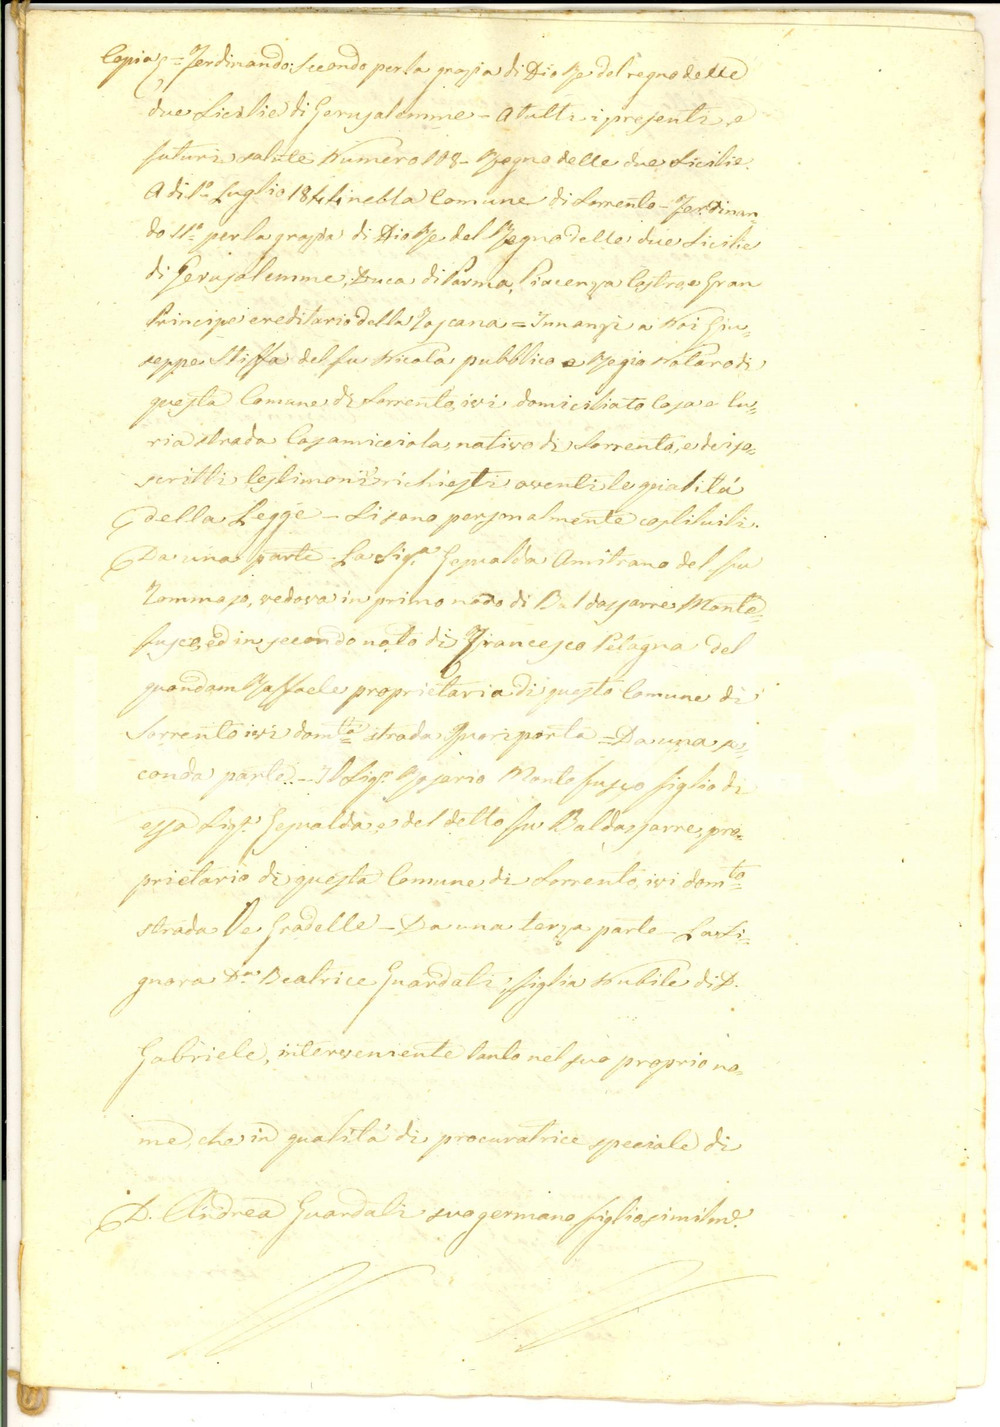 Copia = Ferdinando Secondo per la grazia di Dio Re del regno delle
due Sicilie di Gerusalemme = A tutti i presenti, e
futuri salute Numero 108 = Regno delle due Sicilie.
A dì 1º Luglio 1844 nella Comune di Sorrento = Ferdinan=
do IIº per la grazia di Dio Re del Regno delle due Sicilie
di Gerusalemme, Duca di Parma, Piacenza Castro, e Gran
Principe ereditario della Toscana = Innanzi a Noi Giu=
seppe Stiffa del fu Nicola pubblico e Regio Notaro di
questa Comune di Sorrento, ivi domiciliato Casa e Cu=
ria strada nativo di Sorrento, e de' i so=
scritti testimoni richiesti aventi le qualità
della Legge = Si sono personalmente costituiti.
Da una parte La Sigª Gesualda Amitrano del fu
Tommaso, vedova in primo noto di Baldassarre Monte=
fusco, ed in secondo noto di Francesco Petagna del
quondam Raffaele proprietaria di questa Comune di
Sorrento ivi domta strada Fuori porta = Da una se=
conda parte = Il Sigr Rosario Montefusco figlio di
essa Sigª Gesualda e del detto fu Baldassarre, pro=
prietario di questa Comune di Sorrento, ivi domto
strada Le Gradelle = Da una terza parte = La Si=
gnora Dna Beatrice Guardati, figlia Nubile di D.
Gabriele, interveniente tanto nel suo proprio no=
me, che in qualità di procuratrice speciale di
D. Andrea Guardati suo germano figlio similme